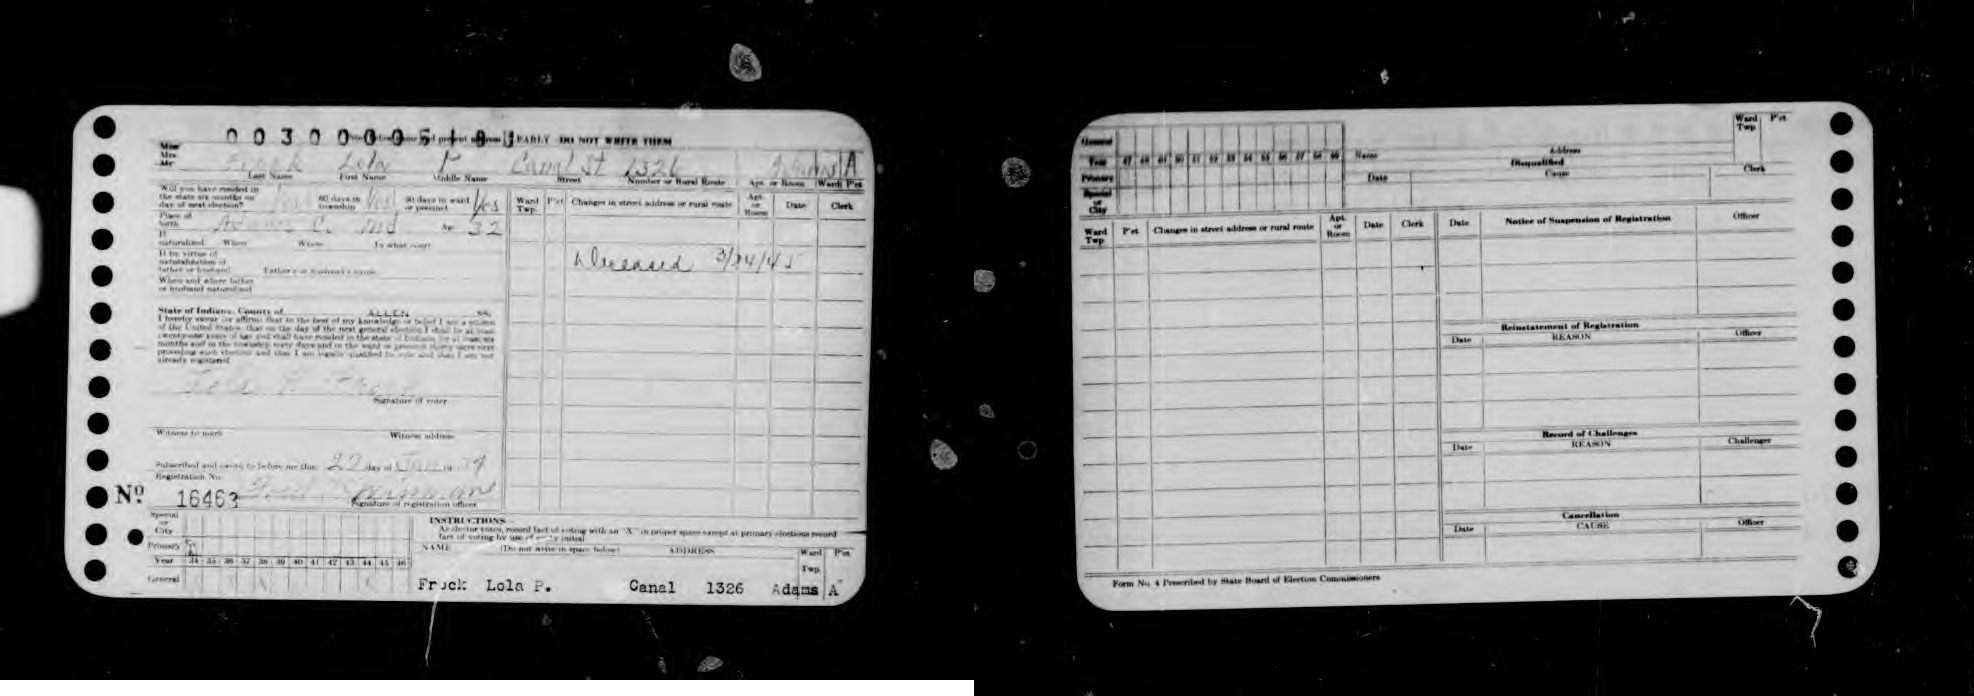 EARLY DO NOT WRITE THEM
Miss
Mrs.
Mr.
Lola P Canal St 1326 Adams A
Last Name First Name Middle Name Street Number or Rural Route Apt. or Room Ward P'ct
Will you have resided in
the state six months on
day of next election? Yes 60 days in
township Yes 30 days in ward
or precinct Yes
Place of
birth Adams C. Ind Age 32
If
naturalized When Where In what court
If by virtue of
naturalization of
father or husband Father's or husband's name
When and where father
or husband naturalized
State of Indiana, County of ALLEN SS.
I hereby swear or affirm that to the best of my knowledge or belief I am a citizen
of the United States; that on the day of the next general election I shall be at least
twenty-one years of age and shall have resided in the state of Indiana for at least six
months and in the township sixty days and in the ward or precinct thirty days next
preceding such election and that I am legally qualified to vote and that I am not
already registered.
Lola P.
Signature of voter
Witness to mark Witness address
Subscribed and sworn to before me this 22 day of Jan 34
Registration No.
Nº 16463
Signature of registration officer
Ward
Twp. P'ct Changes in street address or rural route Apt.
or
Room Date Clerk
Deceased 3/14/45
Special
or
City
Primary
Year 34 35 36 37 38 39 40 41 42 43 44 45 46
General
INSTRUCTIONS
As elector votes, record fact of voting with an "X" in proper space except at primary elections record
fact of voting by use of party initial
NAME (Do not write in space below) ADDRESS Ward
Twp. P'ct
Frock Lola P. Canal 1326 Adams A
General
Year 47 48 49 50 51 52 53 54 55 56 57 58 59
Primary
Special
or
City
Name Address Ward
Twp. P'ct
Disqualified
Date Cause Clerk
Ward
Twp. P'ct Changes in street address or rural route Apt.
or
Room Date Clerk
Date Notice of Suspension of Registration Officer
Reinstatement of Registration
Date REASON Officer
Record of Challenges
Date REASON Challenger
Cancellation
Date CAUSE Officer
Form No. 4 Prescribed by State Board of Election Commissioners